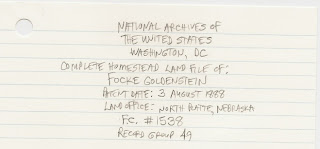 NATIONAL ARCHIVES of
THE UNITED STATES
WASHINGTON, DC
COMPLETE HOMESTEAD LAND FILE OF:
FOCKE GOLDENSTEIN
PATENT DATE: 3 AUGUST 1888
LAND OFFICE: NORTH PLATTE, NEBRASKA
F.C. #1538
RECORD GROUP 49